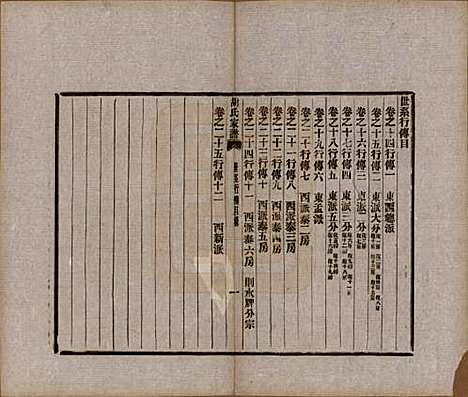 世系行傳目
卷之十四行傳一 東西總派
卷之十五行傳二 東派大分
卷之十六行傳三 東派二分
卷之十七行傳四 東派三分
卷之十八行傳五 東派五分
卷之十九行傳六 東孟派
卷之二十行傳七 西派泰二房
卷之二十一行傳八 西派泰三房
卷之二十二行傳九 西派泰四房
卷之二十三行傳十 西派泰五房
卷之二十四行傳十一 西派泰六房
胡氏家譜 世系行傳目錄 一
卷之二十五行傳十二 西新派